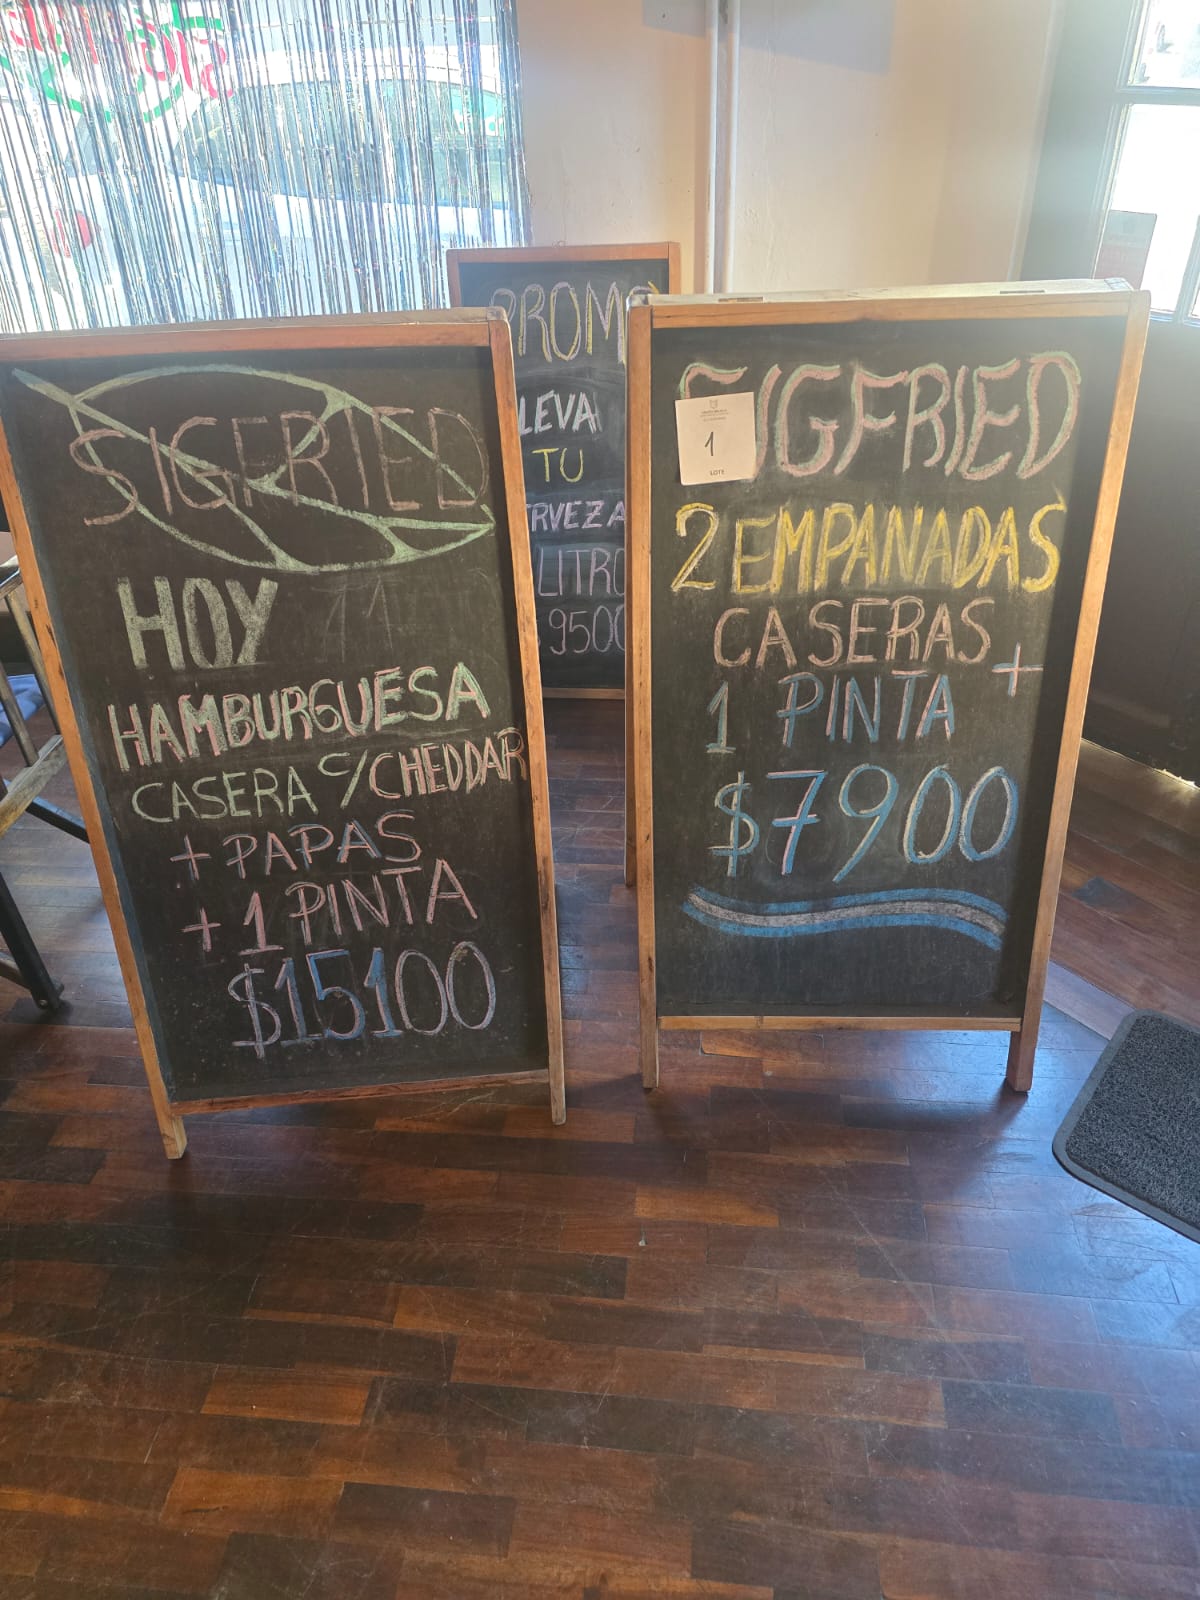 SIGFRIED
HOY
HAMBURGUESA
CASERA C/CHEDDAR
+ PAPAS
+ 1 PINTA
$15100
PROMO
LLEVA
TU
CERVEZA
LITRO
9500
SIGFRIED
1
LOTE
2 EMPANADAS
CASERAS +
1 PINTA
$7900